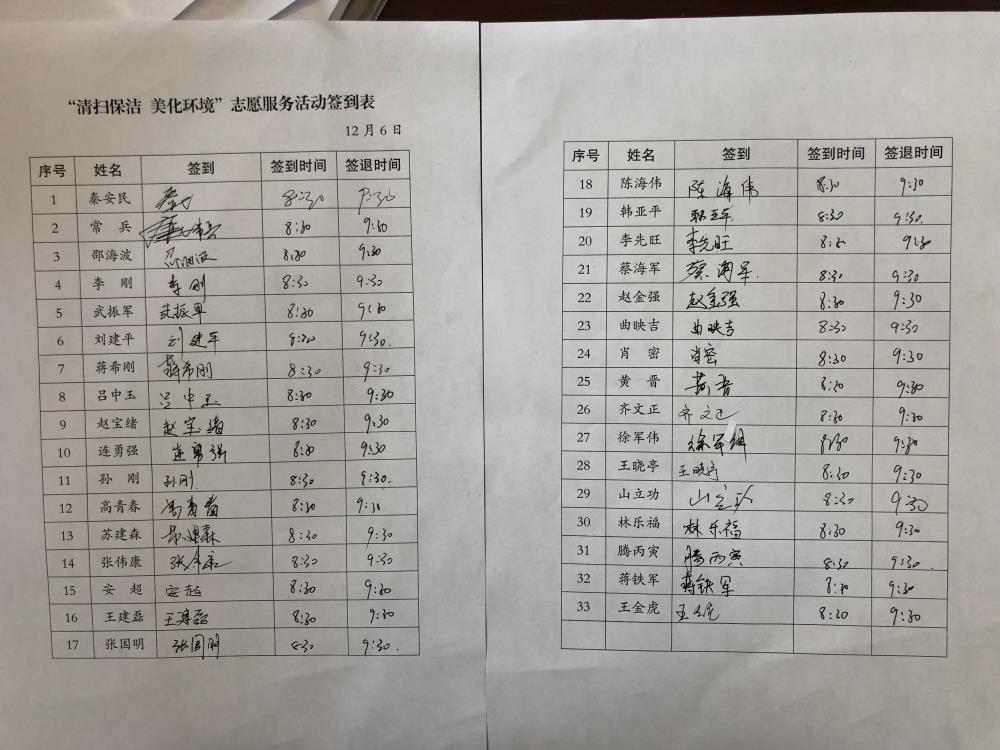 “清扫保洁 美化环境”志愿服务活动签到表
12月6日
序号 姓名 签到 签到时间 签退时间
1 秦安民 8:30 9:30
2 常 兵 8:30 9:30
3 邵海波 邵海波 8:30 9:30
4 李 刚 李刚 8:30 9:30
5 武振军 武振军 8:30 9:30
6 刘建平 刘建平 8:30 9:30.
7 蒋希刚 蒋希刚 8:30 9:30
8 吕中玉 吕中玉 8:30 9:30
9 赵宝绪 赵宝绪 8:30 9:30
10 连勇强 连勇强 8:30 9:30
11 孙 刚 孙刚 8:30 9:30.
12 高青春 高青春 8:30 9:30
13 苏建森 苏建森 8:30 9:30
14 张伟康 张伟康 8:30 9:30
15 安 超 安超 8:30 9:30
16 王建磊 王建磊 8:30 9:30
17 张国明 张国明 8:30 9:30.
序号 姓名 签到 签到时间 签退时间
18 陈海伟 陈海伟 8:30 9:30
19 韩亚平 韩亚平 8:30 9:30.
20 李先旺 李先旺 8:30 9:30
21 蔡海军 蔡海军. 8:30 9:30
22 赵金强 赵金强 8:30 9:30
23 曲映吉 曲映吉 8:30 9:30
24 肖 密 肖密 8:30 9:30
25 黄 晋 黄晋 8:30 9:30
26 齐文正 齐文正 8:30 9:30
27 徐军伟 徐军伟 8:30 9:30
28 王晓亭 王晓亭 8:30 9:30
29 山立功 山立功 8:30 9:30
30 林乐福 林乐福 8:30 9:30
31 腾丙寅 腾丙寅 8:30 9:30.
32 蒋铁军 蒋铁军 8:30 9:30
33 王金虎 8:30 9:30